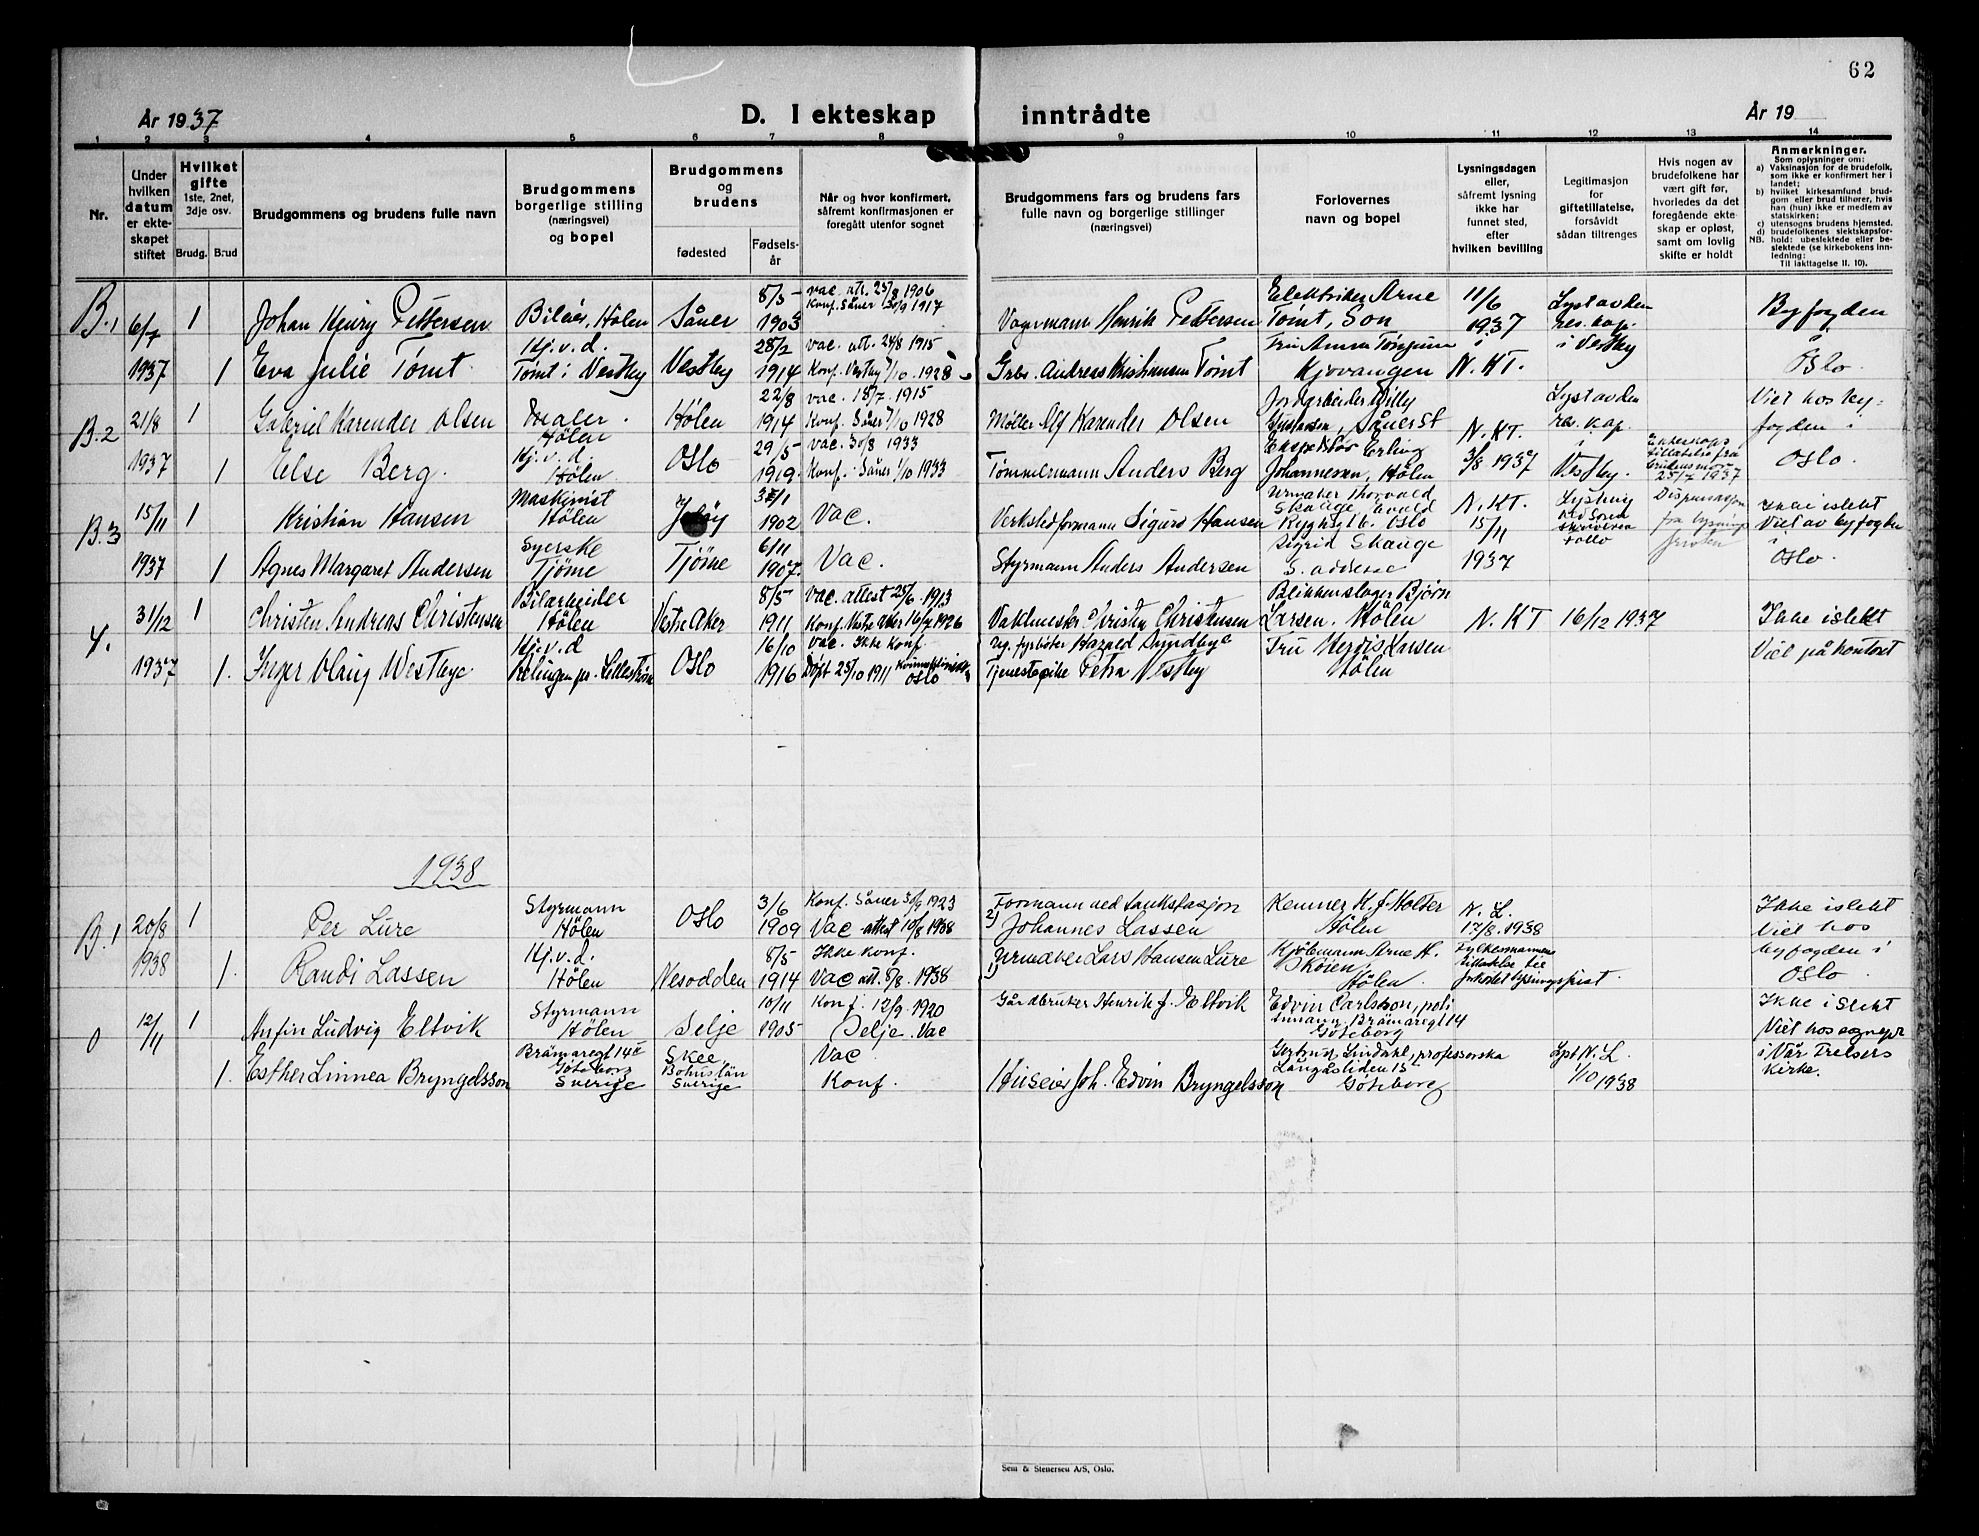 62
År 1937
D. I ekteskap inntrådte
År 19
1 2 3 4 5 6 7 8 9 10 11 12 13 14
Nr.
Under hvilken datum er ekteskapet stiftet
Hvilket gifte 1ste, 2net, 3dje osv.
Brudg. Brud
Brudgommens og brudens fulle navn
Brudgommens borgerlige stilling (næringsvei) og bopel
Brudgommens og brudens
fødested
Fødselsår
Når og hvor konfirmert, såfremt konfirmasjonen er foregått utenfor sognet
Brudgommens fars og brudens fars fulle navn og borgerlige stillinger (næringsvei)
Forlovernes navn og bopel
Lysningsdagen eller, såfremt lysning ikke har funnet sted, efter hvilken bevilling
Legitimasjon for giftetillatelse, forsåvidt sådan tiltrenges
Hvis nogen av brudefolkene har vært gift før, hvorledes da det foregående ekteskap er opløst, samt om lovlig skifte er holdt
Anmerkninger.
Som oplysninger om:
a) Vaksinasjon for de brudefolk, som ikke er konfirmert her i landet;
b) hvilket kirkesamfund brudgom eller brud tilhører, hvis han (hun) ikke er medlem av statskirken;
c) utensogns brudens hjemsted.
d) brudefolkenes slektskapsforhold: ubeslektede eller beslektede (se kirkebokens innledning:
NB.
Til iakttagelse II. 10).
B.1 6/7 1 Johan Henry Pettersen Bileier, Hølen Såner 8/5 1903 vac. att. 25/8 1906 Konf. Såner 30/9 1917 Vognmann Henrik Pettersen Elektriker Arne Tømt, Son 11/6 1937 Lyst av den res. kap. i Vestby Byfogden
1937 1 Eva Julie Tømt Hj.v.d. Tømt i Vestby Vestby 28/2 1914 vac. att. 24/8 1915 Konf. Vestby 7/10 1928 Grbr. Andreas Kristiansen Tømt Kjovangen N. KT. i Oslo.
B.2 21/8 1 Gabriel Karender Olsen Maler. Hølen Hølen 22/8 1914 vac. 18/7 1915 Konf. Såner 7/10 1928 Møller Alf Karender Olsen Jordarbeider Willy Gustavsen, Såner st N. KT. Lyst av den res. kap. i Viet hos byfogden i
1937 1 Else Berg. Hj.v.d. Hølen Oslo 29/5 1919 vac. 30/8 1933 Konf. Såner 1/10 1933 Tømmermann Anders Berg Ekspeditør Erling Johannesen, Hølen 3/8 1937 Vestby. Ekteskapstillatelse fra brudens mor 25/7 1937 Oslo
B.3 15/11 1 Kristian Hansen Maskinist Hølen Jeløy 1902 Vac. Verkstedformann Sigurd Hansen Urmaker Thorvald Skauge, Oslo N. KT. 15/11 Dispensasjon fra lysningsfristen Ikke i slekt Viet av byfogden i
1937 1 Agnes Margaret Andersen Syerske Tjøme Tjøme 6/11 1907. Vac. Styrmann Anders Andersen Sigrid Skauge S. adresse 1937 Oslo.
4. 31/12 1 Christen Andreas Christensen Bilarbeider Hølen Vestre Aker 8/5 1911 Vac. attest 25/6 1913 Konf. Vestre Aker 1926 Vaktmester Christen Christensen Blikkenslager Bjørn Larsen. Hølen N. KT 16/12 1937 Ikke i slekt
1937 1. Inger Olaug Westbye Hj.v.d Relingen pr. Lillestrøm Oslo 16/10 1916 Vac. Ikke Konf. Døpt 25/10 1911 Oslo Ug. fyrbøter Harald Sundbye Tjenestepike Petra Vestby Fru Herdis Larsen Hølen Viet på kontoret
1938
B.1 20/8 1 Per Lure Styrmann Hølen Oslo 3/6 1909 Konf. Såner 30/9 1923 Vac attest 10/8 1938 Formann ved tankstasjon 2) Johannes Lassen Kemner H. J. Holter Hølen N. L. 17/8. 1938 Ikke i slekt Viet hos
1938 1. Randi Lassen Hj.v.d. Hølen Nesodden 8/5 1914 Ikke Konf. Vac att. 8/8. 1938 1) Urmaker Lars Hansen Lure Kjøbmann Arne H. Skoien, Hølen Fylkesmannens tillatelse til forkortet lysningsfrist. byfogden i Oslo
0 12/11 1 Anfin Ludvig Eltvik Styrmann Hølen Selje 10/11 1905 Konf. 12/9. 1920 Selje. Vac Gårdbruker Henrik J. Eltvik Edvin Carlsson, polisman, Brämaregt 14 Göteborg Ikke i slekt Viet hos sognepr
1. Esther Linnea Bryngelsson Brämaregt 14 Göteborg Sverige Skee, Bohuslän Sverige Vac Konf. Huseier Joh. Edvin Bryngelsson Gertrud Lindahl, professorska Långåsliden 15 Göteborg Lyst N. L. 1/10 1938 i Vår Frelsers Kirke.
Sem & Stenersen A/S, Oslo.